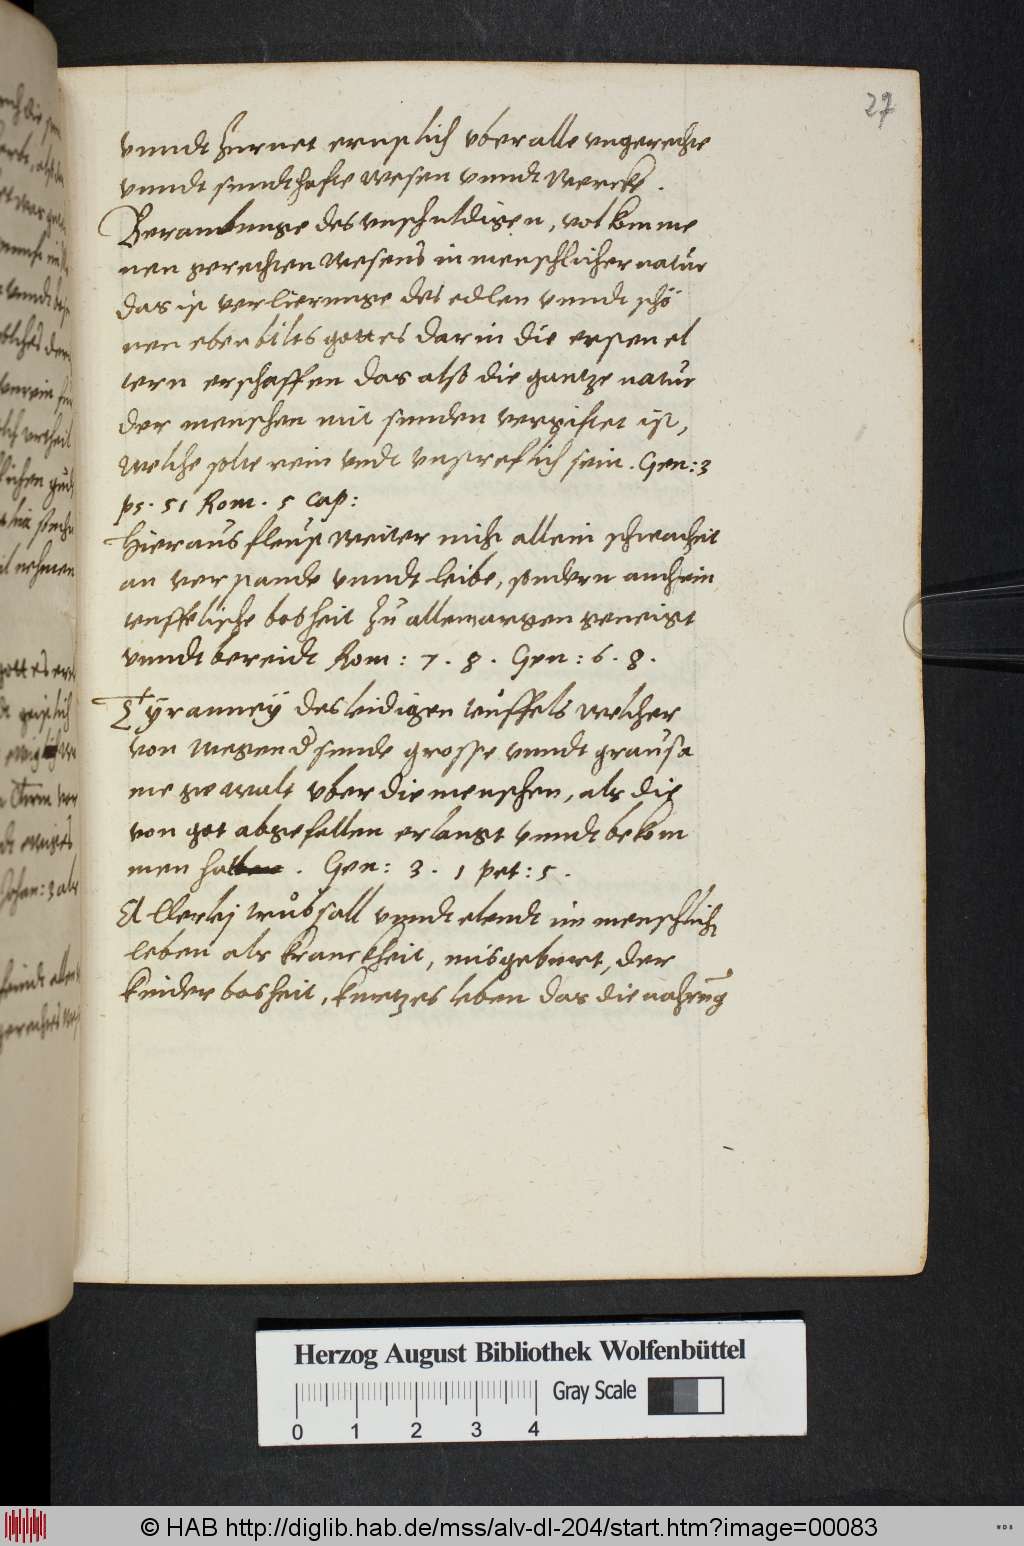 27
vnndt zurnet ernstlich vber alle vngerechte
vnndt sundthafte wesen vnndt wercke.
Beraubunge des vnschuldigen, volkomme
nen gerechten wesens in menschlicher natur
das ist verlierunge des edlen vnndt schö
nen ebenbilts gottes darin die ersten el
tern erschaffen das also die gantze natur
der menschen mit sunden vergiftet ist,
welche solte rein vndt vnstreflich sein. Gen: 3
ps. 51 Rom. 5 cap:
Hieraus fleust weiter nicht allein schwacheit
an verstande vnndt leibe, sondern auch ein
teuffelische bosheit zu allem argen geneigt
vnndt bereidt Rom: 7. 8. Gen: 6. 8.
Tÿranneÿ des leidigen teuffels welcher
von wegen d sunde grosse vnndt grausa
me gewalt vber die menschen, als die
von got abgefallen erlangt vnndt bekom
men hatt. Gen: 3. 1 pet: 5.
Allerlej trübsall vnndt elendt im menschlich
leben als kranckheit, misgeburt, der
kinder bosheit, kurtzes leben das die nahrug
Herzog August Bibliothek Wolfenbüttel
Gray Scale
0 1 2 3 4
© HAB http://diglib.hab.de/mss/alv-dl-204/start.htm?image=00083